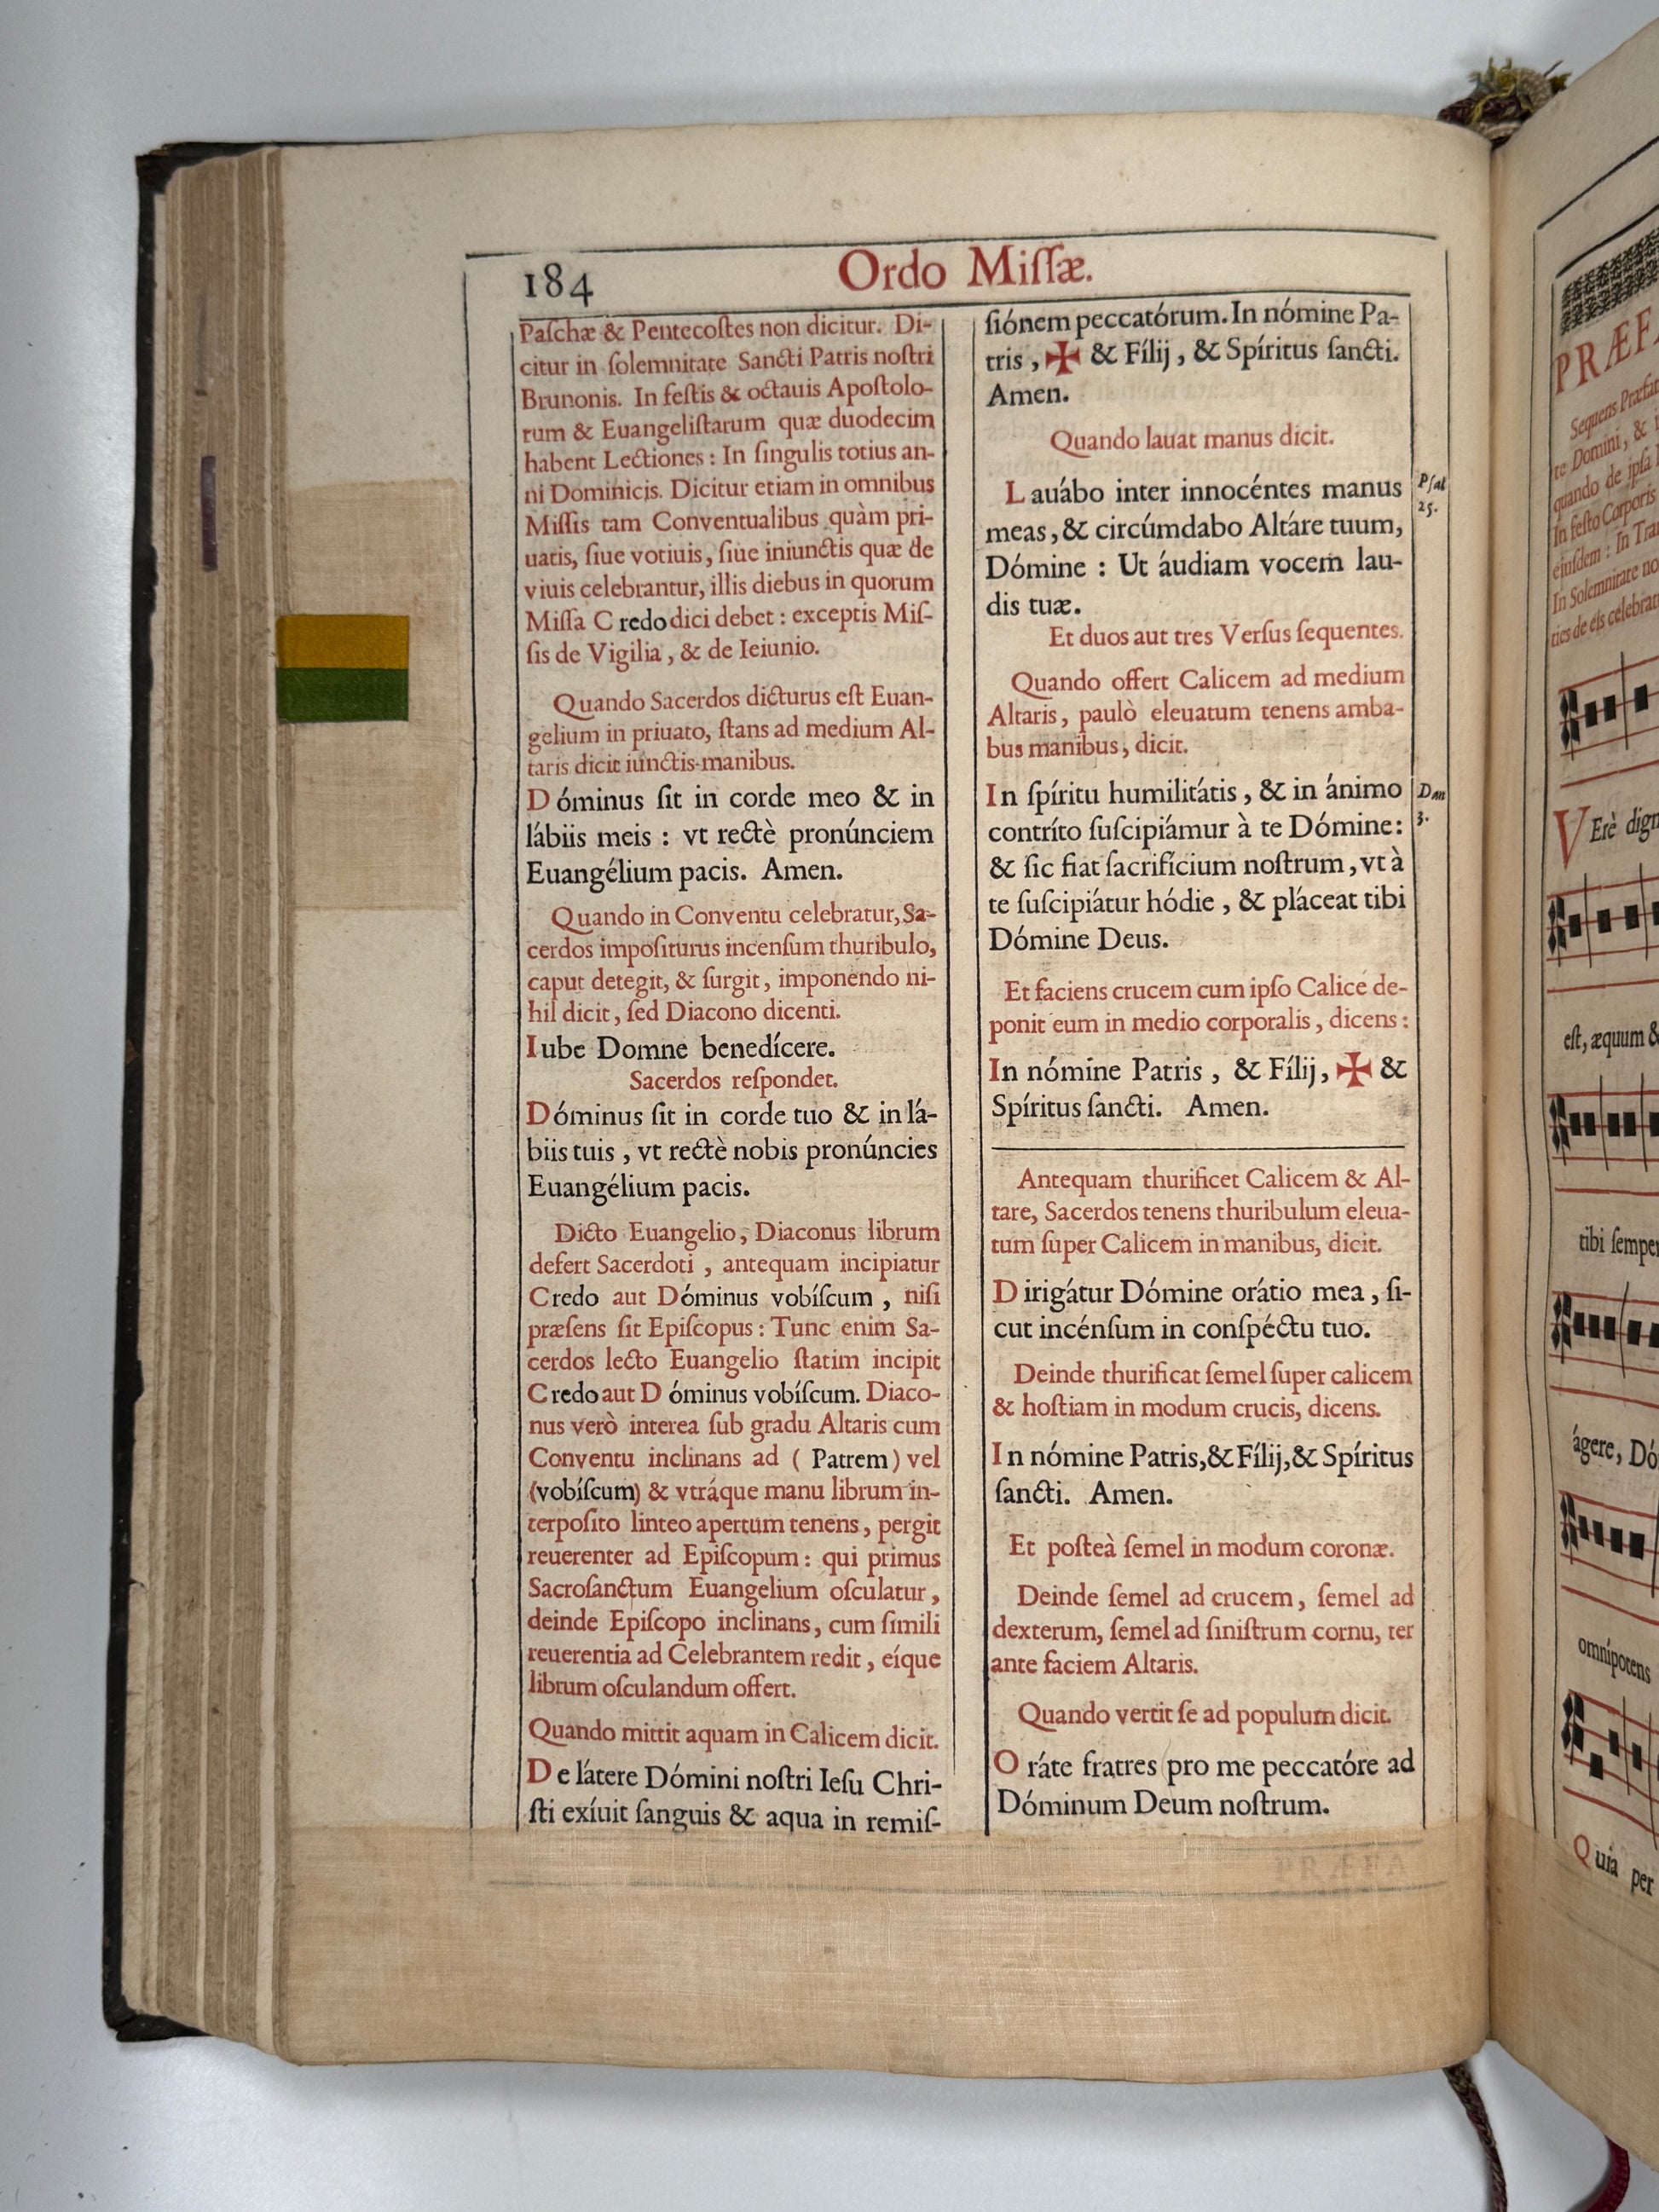 184
Ordo Miſſæ.
Paſchæ & Pentecoſtes non dicitur. Di-
citur in ſolemnitate Sancti Patris noſtri
Brunonis. In feſtis & octauis Apoſtolo-
rum & Euangeliſtarum quæ duodecim
habent Lectiones : In ſingulis totius an-
ni Dominicis. Dicitur etiam in omnibus
Miſſis tam Conventualibus quàm pri-
uatis, ſiue votiuis, ſiue iniunctis quæ de
viuis celebrantur, illis diebus in quorum
Miſſa Credo dici debet : exceptis Miſ-
ſis de Vigilia, & de Ieiunio.
Quando Sacerdos dicturus eſt Euan-
gelium in priuato, ſtans ad medium Al-
taris dicit iunctis manibus.
Dóminus ſit in corde meo & in
lábiis meis : vt rectè pronúnciem
Euangélium pacis. Amen.
Quando in Conventu celebratur, Sa-
cerdos impoſiturus incenſum thuribulo,
caput detegit, & ſurgit, imponendo ni-
hil dicit, ſed Diacono dicenti.
Iube Domne benedícere.
Sacerdos reſpondet.
Dóminus ſit in corde tuo & in lá-
biis tuis, vt rectè nobis pronúncies
Euangélium pacis.
Dicto Euangelio, Diaconus librum
defert Sacerdoti, antequam incipiatur
Credo aut Dóminus vobíſcum, niſi
præſens ſit Epiſcopus : Tunc enim Sa-
cerdos lecto Euangelio ſtatim incipit
Credo aut Dóminus vobíſcum. Diaco-
nus verò interea ſub gradu Altaris cum
Conventu inclinans ad ( Patrem ) vel
(vobíſcum) & vtráque manu librum in-
terpoſito linteo apertum tenens, pergit
reuerenter ad Epiſcopum : qui primus
Sacroſanctum Euangelium oſculatur,
deinde Epiſcopo inclinans, cum ſimili
reuerentia ad Celebrantem redit, eíque
librum oſculandum offert.
Quando mittit aquam in Calicem dicit.
De látere Dómini noſtri Ieſu Chri-
ſti exíuit ſanguis & aqua in remiſ-
ſiónem peccatórum. In nómine Pa-
tris, ✠ & Fílij, & Spíritus ſancti.
Amen.
Quando lauat manus dicit.
Lauábo inter innocéntes manus
meas, & circúmdabo Altáre tuum,
Dómine : Ut áudiam vocem lau-
dis tuæ.
Pſal
25.
Et duos aut tres Verſus ſequentes.
Quando offert Calicem ad medium
Altaris, paulò eleuatum tenens amba-
bus manibus, dicit.
In ſpíritu humilitátis, & in ánimo
contríto ſuſcipiámur à te Dómine :
& ſic fiat ſacrifícium noſtrum, vt à
te ſuſcipiátur hódie, & pláceat tibi
Dómine Deus.
Dan
3.
Et faciens crucem cum ipſo Calice de-
ponit eum in medio corporalis, dicens :
In nómine Patris, & Fílij, ✠ &
Spíritus ſancti. Amen.
Antequam thurificet Calicem & Al-
tare, Sacerdos tenens thuribulum eleua-
tum ſuper Calicem in manibus, dicit.
Dirigátur Dómine orátio mea, ſi-
cut incénſum in conſpéctu tuo.
Deinde thurificat ſemel ſuper calicem
& hoſtiam in modum crucis, dicens.
In nómine Patris, & Fílij, & Spíritus
ſancti. Amen.
Et poſteà ſemel in modum coronæ.
Deinde ſemel ad crucem, ſemel ad
dexterum, ſemel ad ſiniſtrum cornu, ter
ante faciem Altaris.
Quando vertit ſe ad populum dicit.
Oráte fratres pro me peccatóre ad
Dóminum Deum noſtrum.
PRÆFA
PRÆFA
Sequens Præfat
te Domini, & i
quando de ipſa
In feſto Corporis
eiuſdem : In Tra
In Solemnitate no
ties de eis celebrat
VErè dign
eſt, æquum &
tibi ſemper
ágere, Dó
omnípotens
Quia per